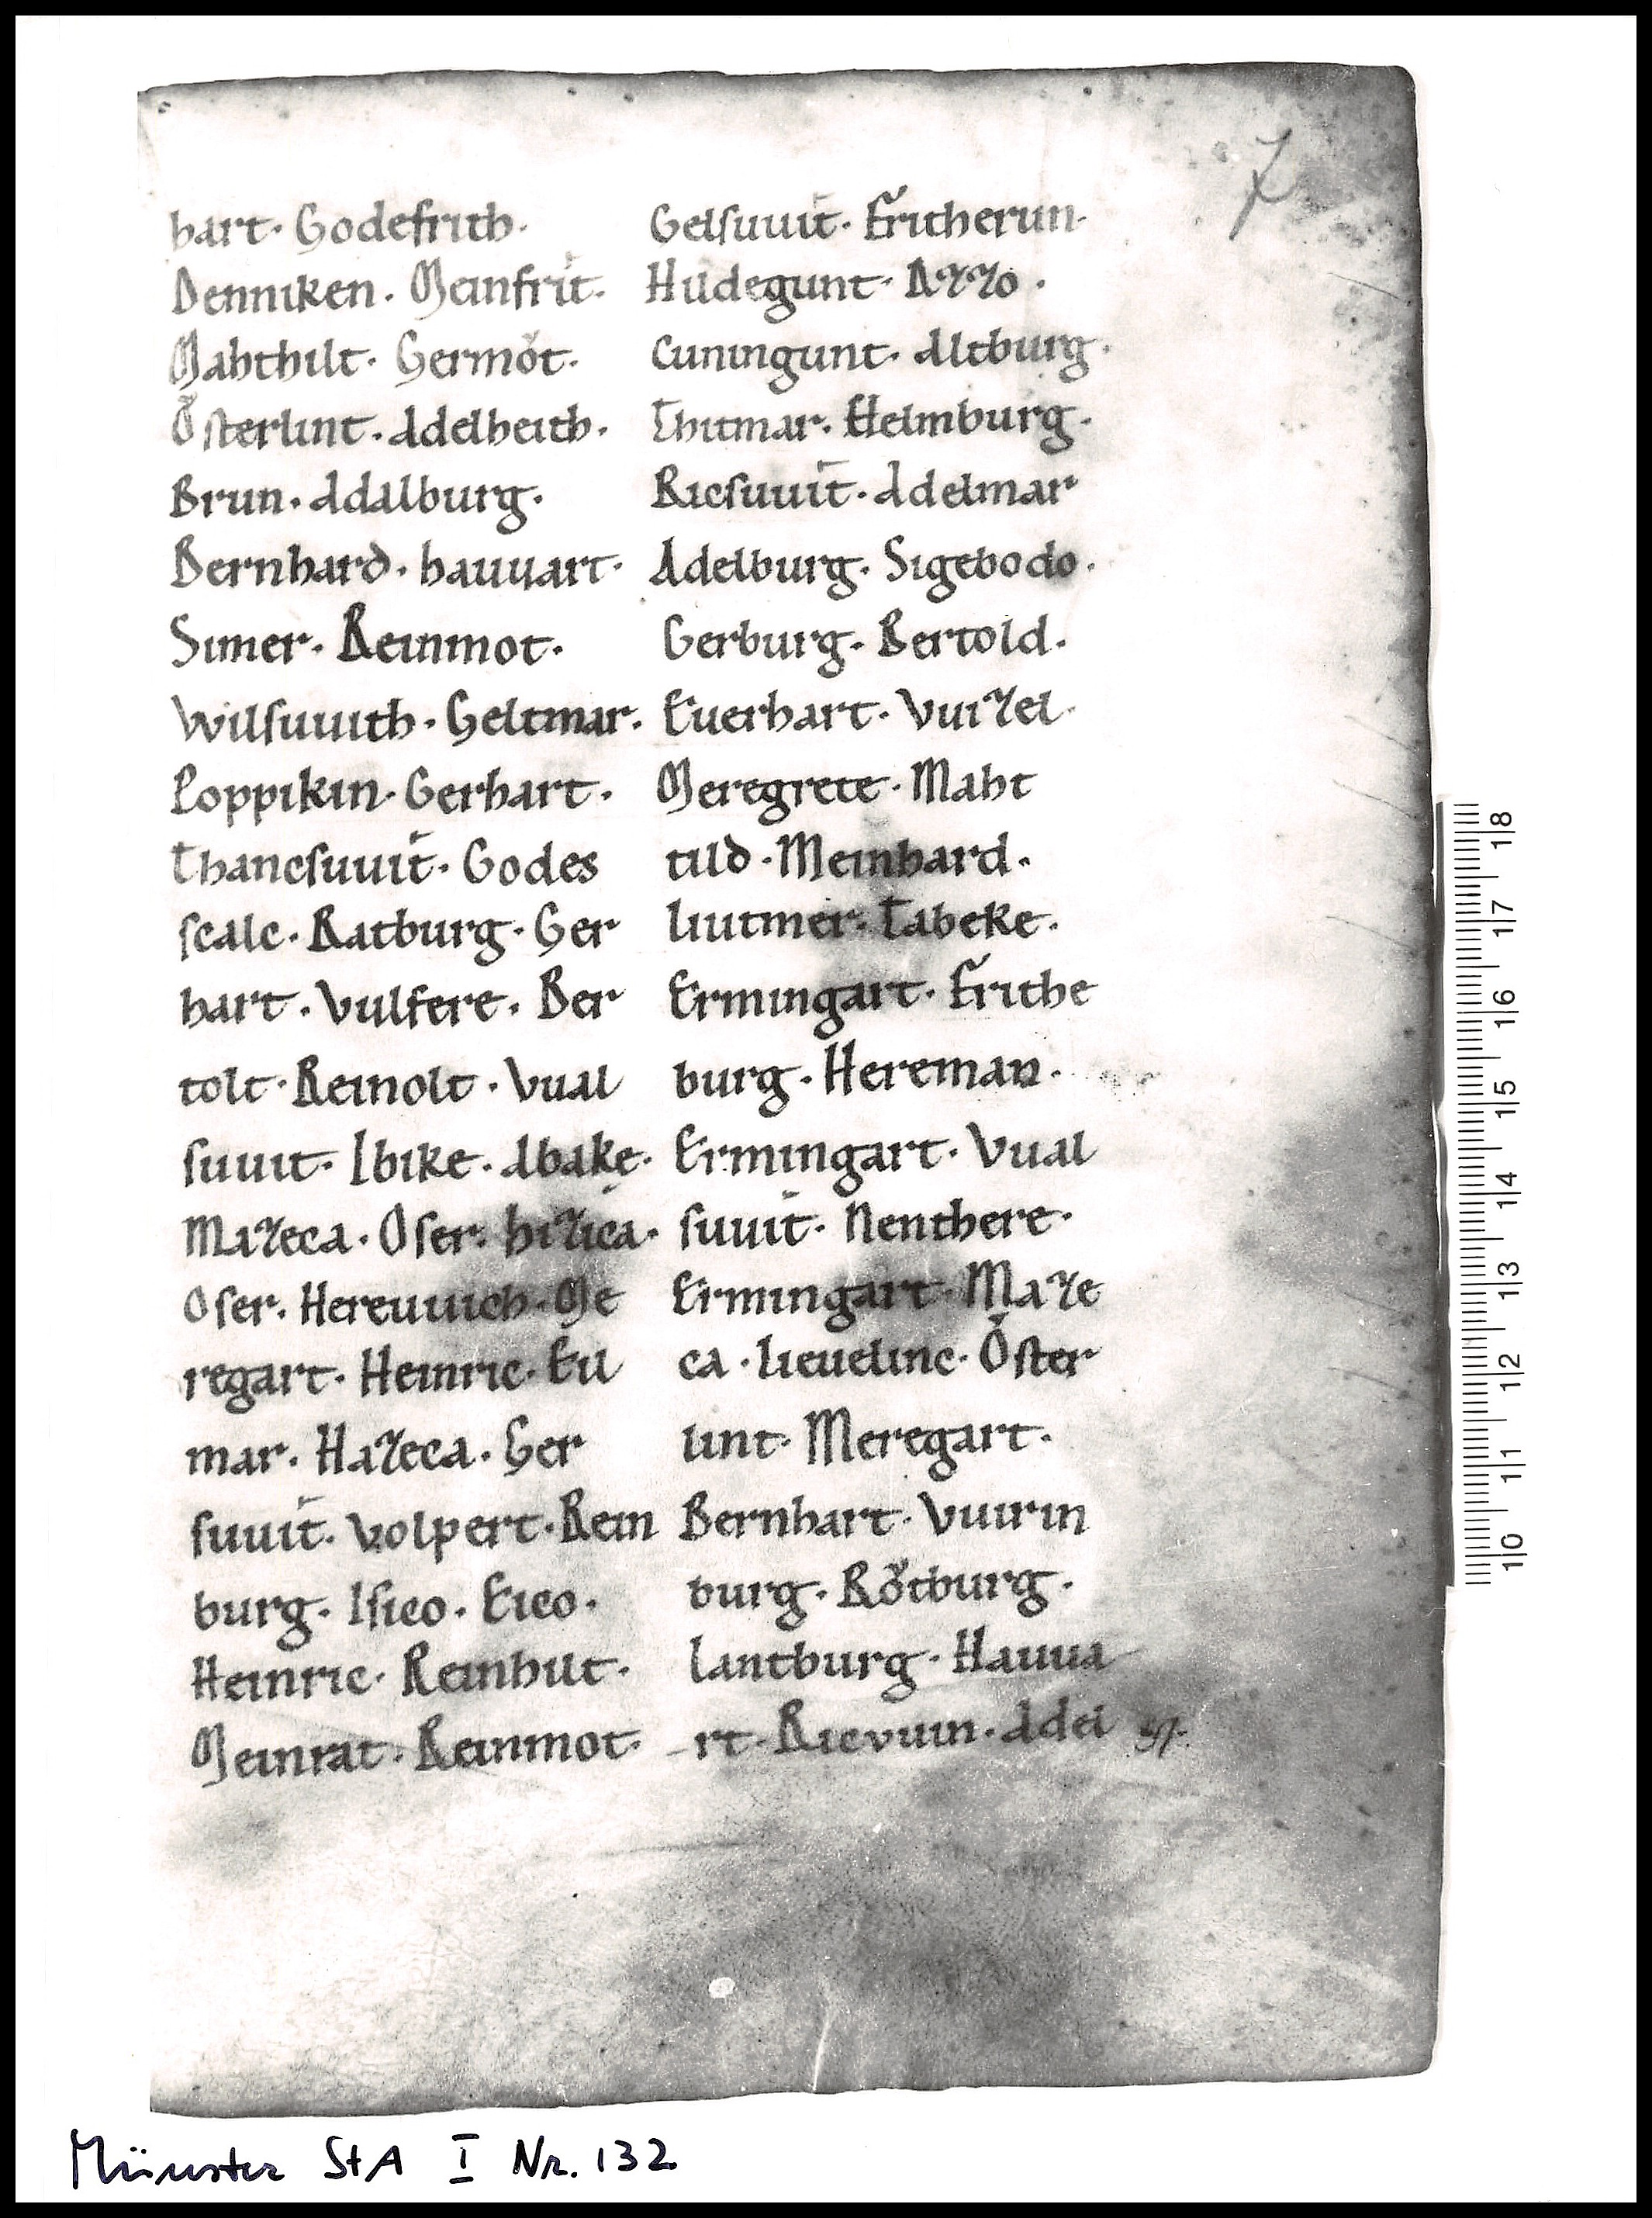 7
hart. Godefrith.
Denniken. Meinfrit.
Mahthilt. Germot.
Osterlint. Adelheith.
Brun. Adalburg.
Bernhard. hauuart.
Simer. Reinmot.
Wilsuuith. Geltmar.
Poppikin. Gerhart.
Thancsuuit. Godes
scalc. Ratburg. Ger
hart. Vulfere. Ber
tolt. Reinolt. Vual
suuit. Ibike. Abake.
Mazeca. Oser. hizica.
Oser. Hereuuich. Me
regart. Heinric. Eil
mar. Hazeca. Ger
suuit. Volpert. Rein
burg. Isico. Eico.
Heinric. Reinhilt.
Meinrat. Reinmot.
Gelsuuit. Fritherun.
Hildegunt. Azzo.
Cuningunt. Altburg.
Thitmar. Helmburg.
Ricsuuit. Adelmar
Adelburg. Sigebodo.
Gerburg. Bertold.
Euerhart. Vuizel.
Meregrete. Maht
tild. Meinhard.
liutmer. Tabeke.
Ermingart. Frithe
burg. Hereman.
Ermingart. Vual
suuit. Nenthere.
Ermingart. Maze
ca. lieuelinc. Oster
lint. Meregart.
Bernhart. Vuirin
burg. Rötburg.
lantburg. Hauua
rt. Ricvuin. Adel
1|8
1|7
1|6
1|5
1|4
1|3
1|2
1|1
1|0
Münster StA I Nr. 132